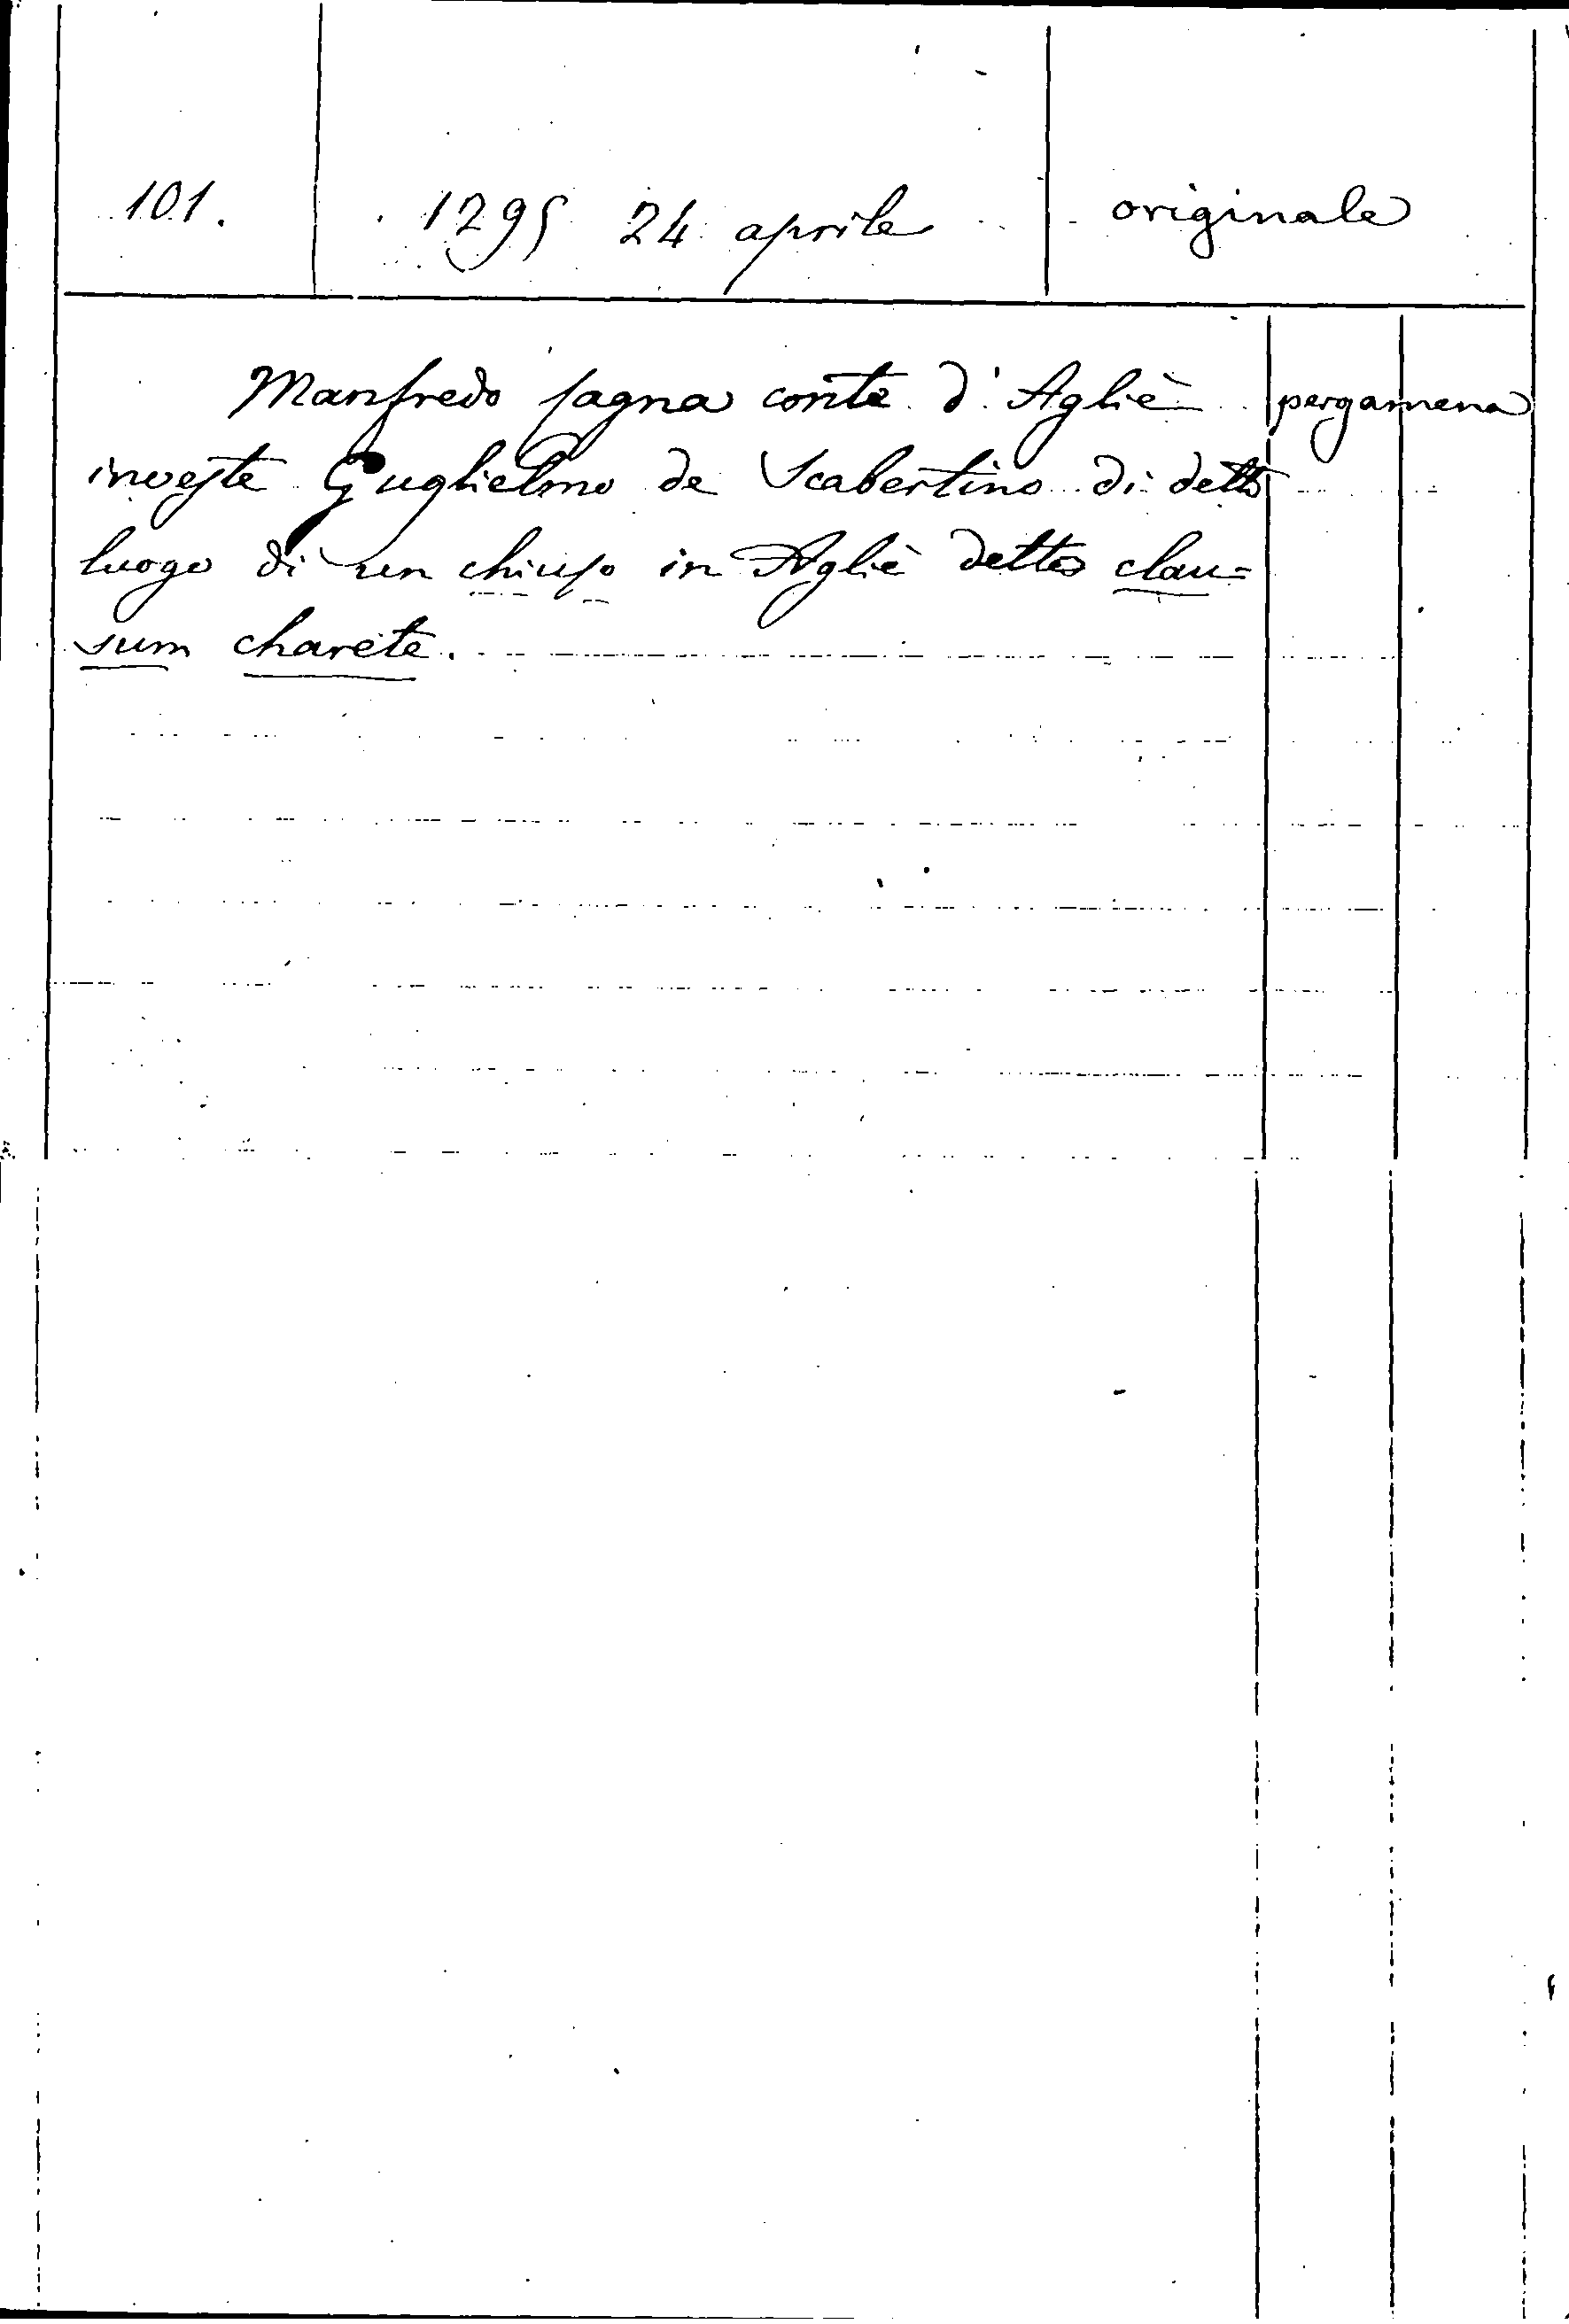 101. 1295 24 aprile originale
Manfredo sagna conte d'Agliè pergamena
investe Guglielmo de Scabertino di detto
luogo di un chiuso in Agliè detto clau=
sum charete.